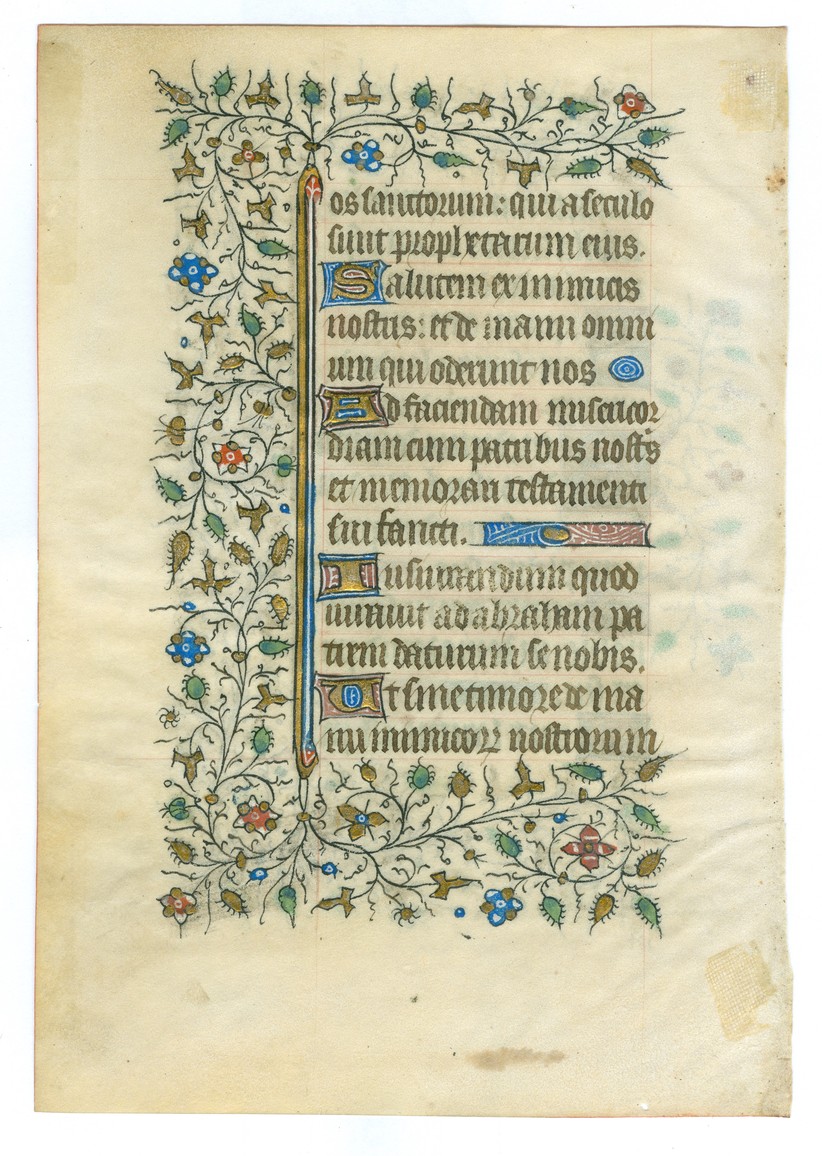 os sanctorum: qui a seculo
sunt prophetarum eius.
Salutem ex inimicis
nostris: et de manu omni
um qui oderunt nos
Ad faciendam misericor
diam cum patribus nostis
et memorari testamenti
sui sancti.
Iusiurandum quod
iurauit ad abraham pa
trem daturum se nobis.
Ut sine timore de ma
nu inimicorum nostrorum